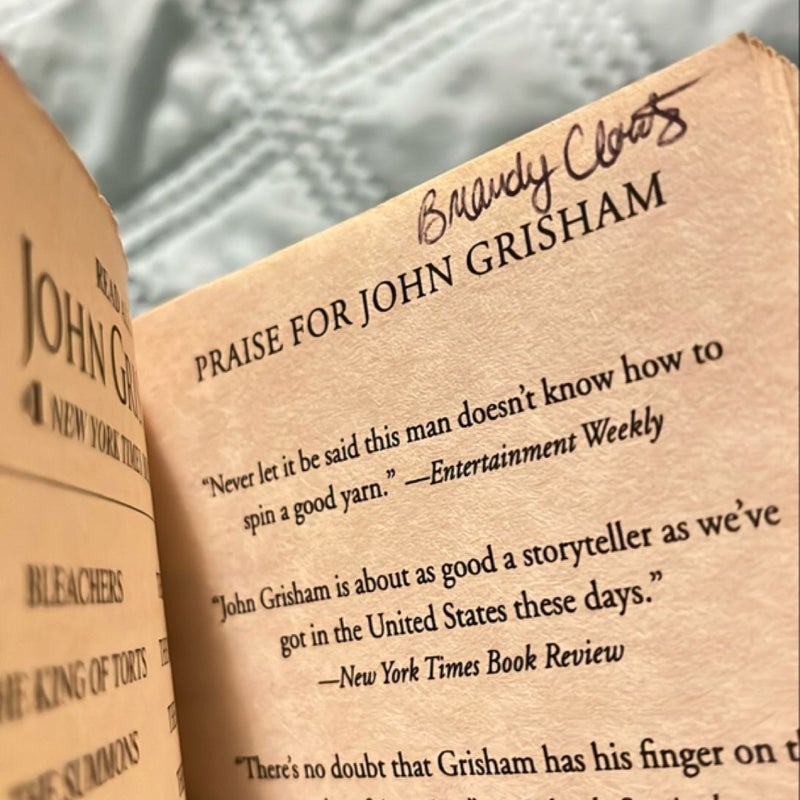 READ
JOHN GRI
#1 NEW YORK TIMES
BLEACHERS
THE KING OF TORTS
THE SUMMONS
Brandy Clouts
PRAISE FOR JOHN GRISHAM
“Never let it be said this man doesn’t know how to
spin a good yarn.” —Entertainment Weekly
“John Grisham is about as good a storyteller as we’ve
got in the United States these days.”
—New York Times Book Review
“There’s no doubt that Grisham has his finger on t